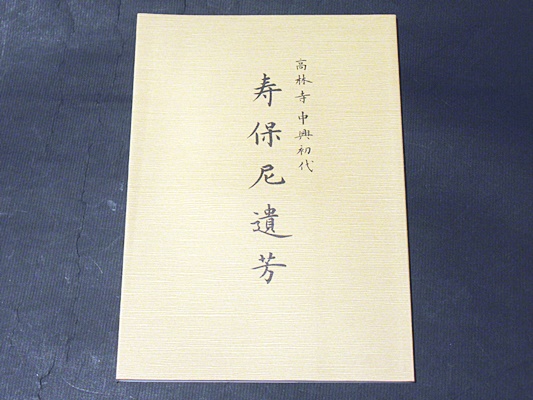 高林寺中興初代
寿保尼遺芳